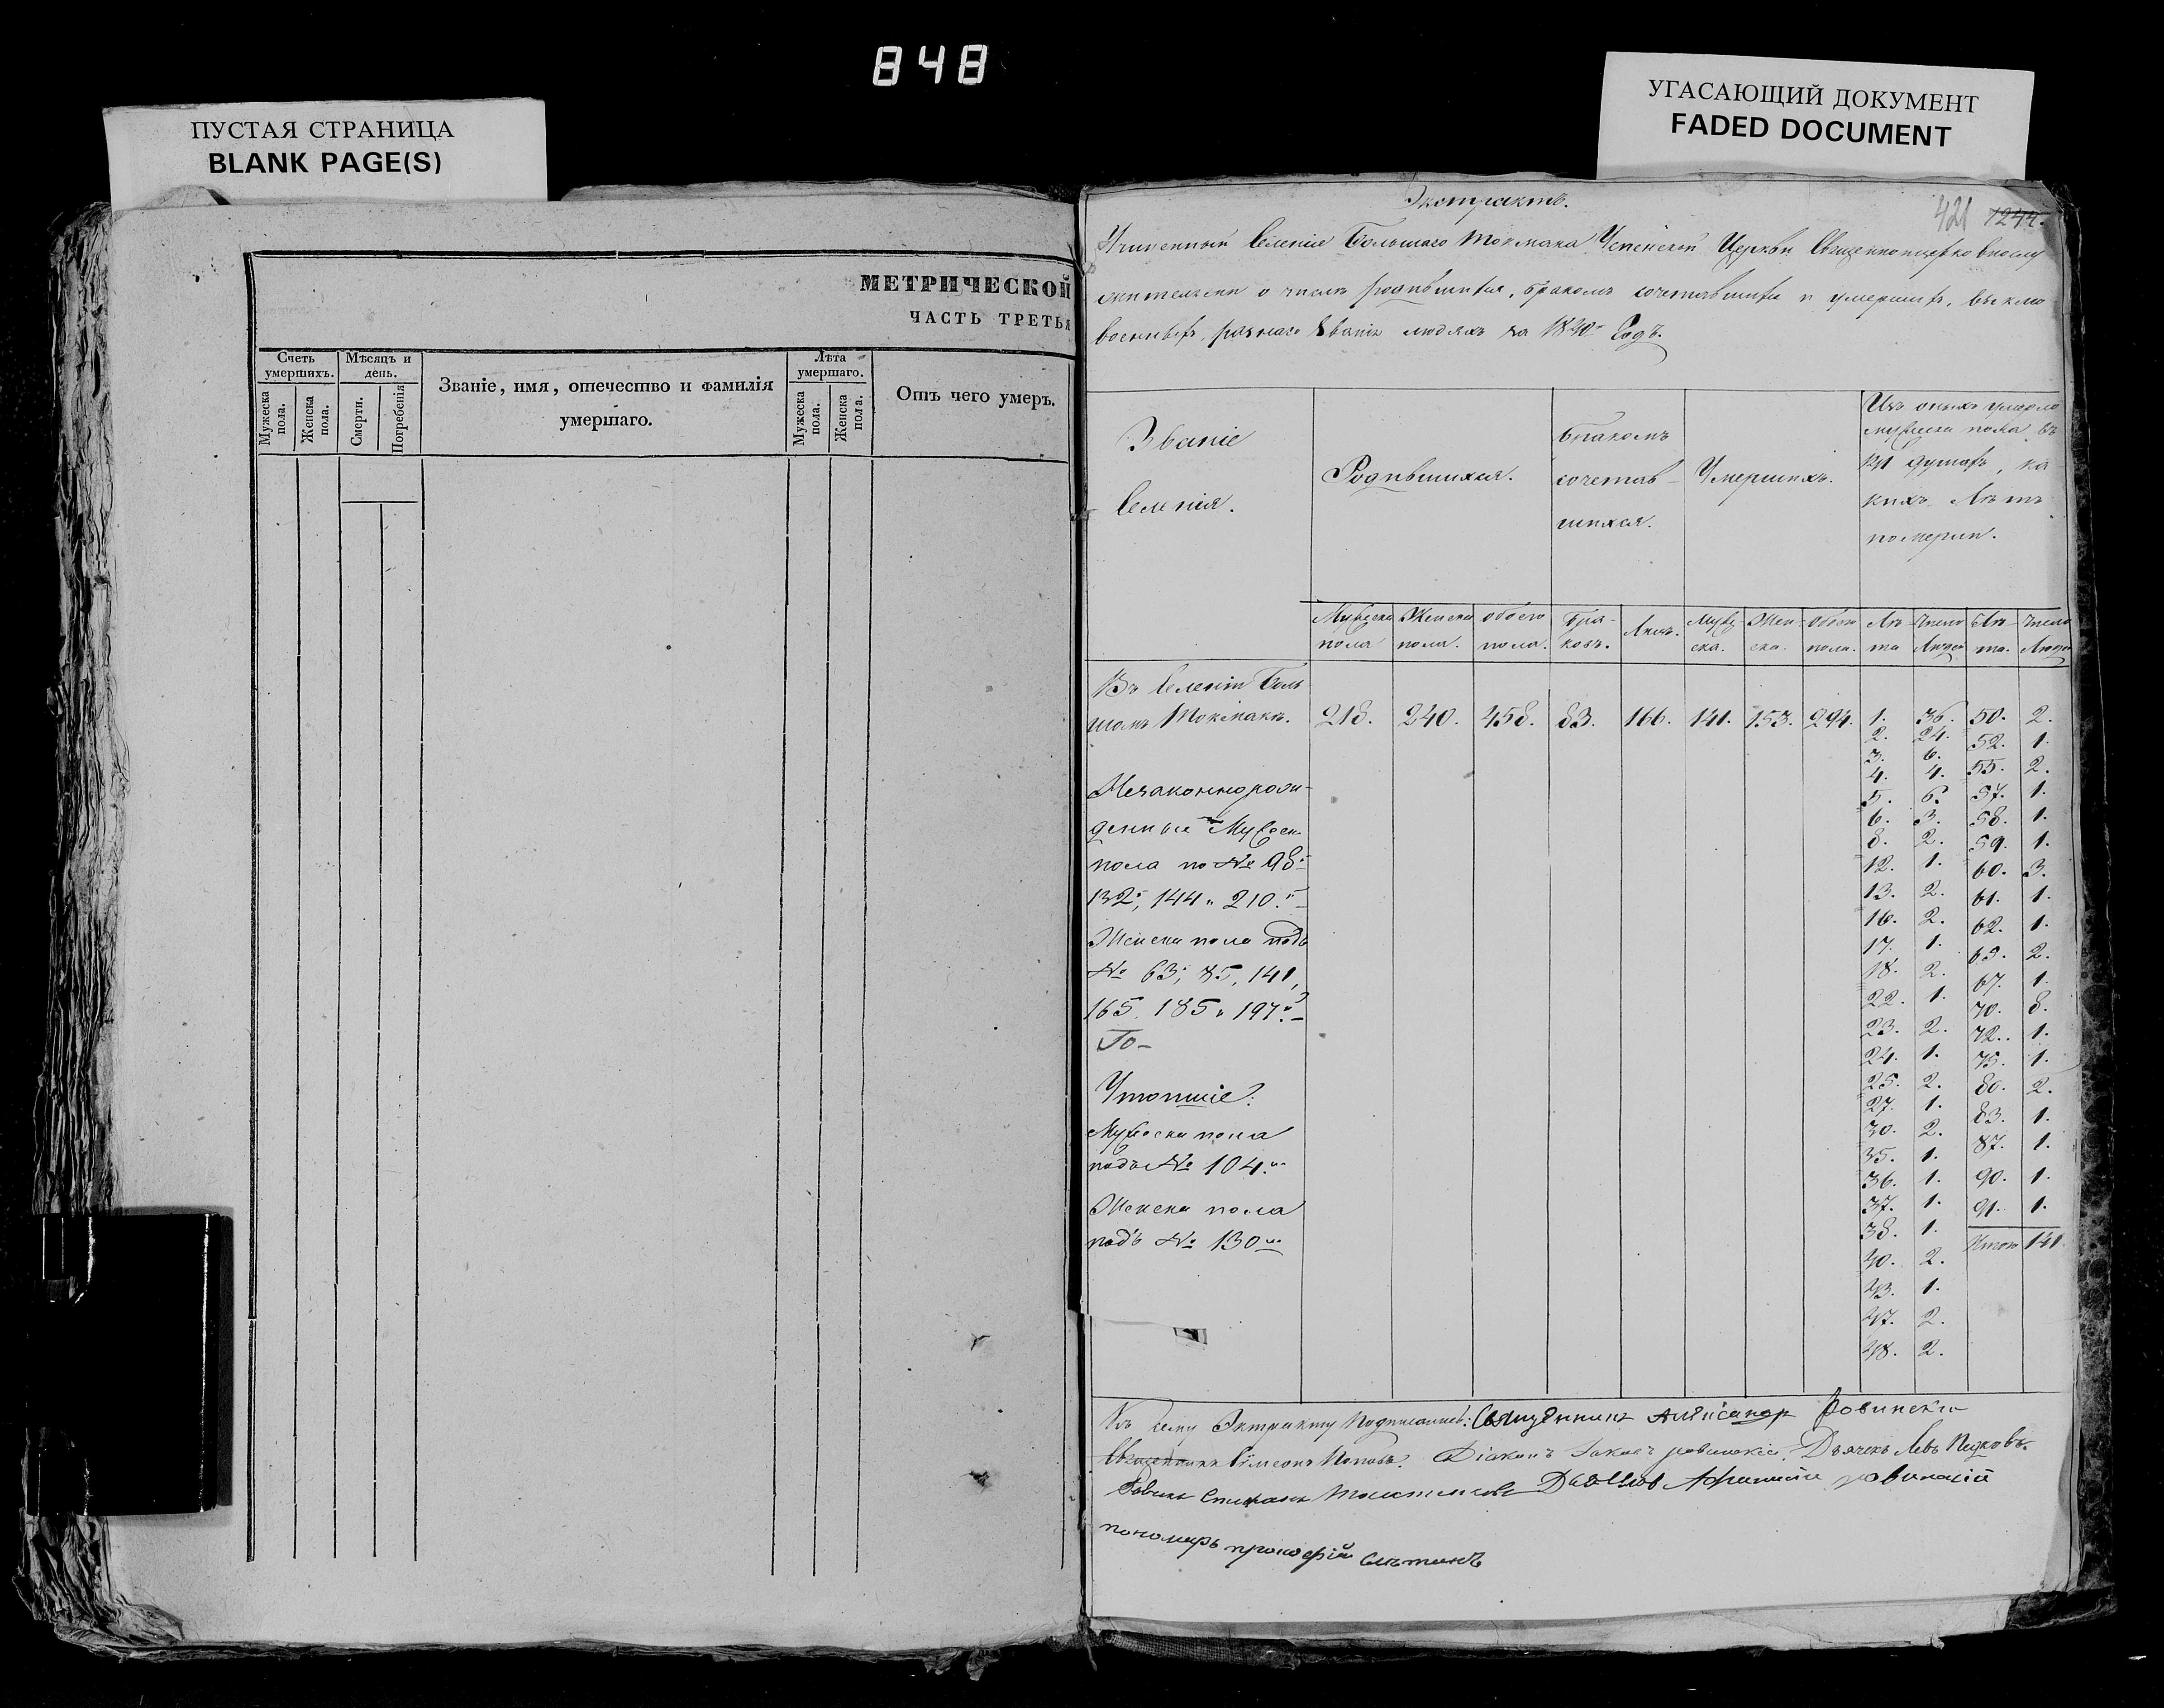 848
ПУСТАЯ СТРАНИЦА
BLANK PAGE(S)
УГАСАЮЩИЙ ДОКУМЕНТ
FADED DOCUMENT
МЕТРИЧЕСКОЙ
ЧАСТЬ ТРЕТЬЯ
Счетъ умершихъ.
Мѣсяцъ и день.
Званіе, имя, отечество и фамилія умершаго.
Лѣта умершаго.
Отъ чего умеръ.
Мужеска пола.
Женска пола.
Смерти.
Погребенія
Мужеска пола.
Женска пола.
Экстрактъ.
421 1244.
Учиненный Селенія Большаго Токмака Успенской Церкви Священноцерковнослу
жительми о числѣ родившихся, бракомъ сочетавшихся и умершихъ, выклю
военныхъ, разнаго Званія людяхъ за 1840й Годъ.
Званіе
Селенія.
Родившихся.
Бракомъ
сочетав-
шихся.
Умершихъ.
Изъ оныхъ умерло
мужеска пола въ
141 душахъ, ка
кихъ Лѣтъ
померли.
Мужеска пола
Женска пола.
обоего пола.
Бра-ковъ.
Лицъ.
Муже-ска.
Жен-ска.
Обоего пола.
Лѣ-та
Число Людей
Лѣ-та.
Число Людей
Въ Селеніи Боль
шомъ Токмакѣ. 218. 240. 458. 83. 166. 141. 153. 294. 1. 36. 50. 2.
2. 24. 52. 1.
3. 6. 55. 2.
4. 4. 57. 1.
5. 6. 58. 1.
6. 3. 59. 1.
8. 2. 60. 3.
12. 1. 61. 1.
13. 2. 62. 1.
16. 2. 65. 2.
17. 1. 67. 1.
18. 2. 70. 8.
22. 1. 72. 1.
23. 2. 75. 1.
24. 1. 80. 2.
25. 2. 83. 1.
27. 1. 87. 1.
30. 2. 90. 1.
35. 1. 91. 1.
36. 1. Итого 141.
37. 1.
38. 1.
40. 2.
43. 1.
47. 2.
48. 2.
Незаконнорож-
денные Мужеск.
пола по № 98
132, 144 и 210.
Женска пола подъ
№ 63, 85, 141,
165, 185 и 197
Утопшіе:
Мужеска пола
подъ № 104.
Женска пола
подъ № 130
Къ сему Экстракту Подписались: Священникъ Александр Ровински
Священникъ Симеонъ Поповъ. Діаконъ Іаковъ ровинскіа. Дьячекъ Левъ Пидковъ.
Стефанъ Дьячков ровинскій
пономарь прокофій